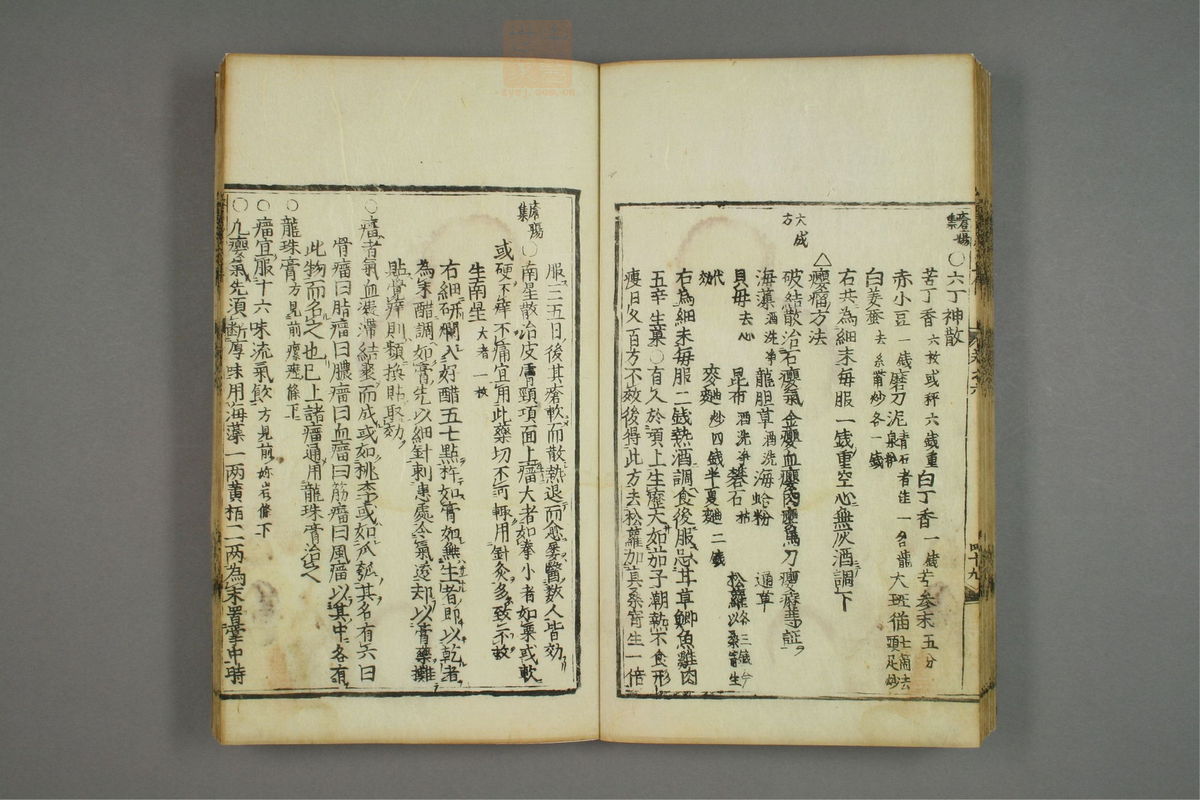 瘡瘍集
○六丁神散
苦丁香六枚或秤六錢重 白丁香一錢 苦参末五分
赤小豆一錢 磨刀泥 者佳一名龍泉粉 大斑猫七箇去頭足炒
白姜蚕去糸觜炒各一錢
右共為細末毎服一錢重空心無灰酒調下
△癭瘤方法
大成方
破結散治石癭氣癭血癭肉癭馬刀癭癧等証
海藻酒洗浄 龍胆草酒洗 海蛤粉 通草
貝母去心 昆布酒洗浄 礬石枯 松蘿各三錢今以桑寄生
代効 麥麯炒四錢 半夏麯二錢
右為細末毎服二錢熱酒調食後服忌甘草鯽魚雞肉
五辛生菓○有人於項上生癧大如茄子潮熱不食形
痩日久百方不效後得此方去松蘿加真桑寄生一倍
四十九
服三五日後其瘡軟而散熱退而愈屡醫数人皆効
瘡瘍集
○南星散治皮膚頸項面上瘤大者如拳小者如栗或軟
或硬不痒不痛宜用此藥切不可輙用針灸多致不救
生南星大者一枚
右細研爛入好醋五七點杵如膏如無生者即以乾者
為末醋調如膏先以細針刺患處令氣透却以膏藥攤
貼覺痒則頻換貼取効
○瘤者氣血凝滯結聚而成或如桃李或如瓜瓠其名有六曰
骨瘤曰脂瘤曰膿瘤曰血瘤曰筋瘤曰風瘤以其中各有
此物而名之也已上諸瘤通用龍珠膏治之
○龍珠膏方見前瘰癧條下
○瘤宜服十六味流氣飲方見前妳岩條下
○凡癭氣先須断厚味用海藻一両黄栢二両為末置掌中時